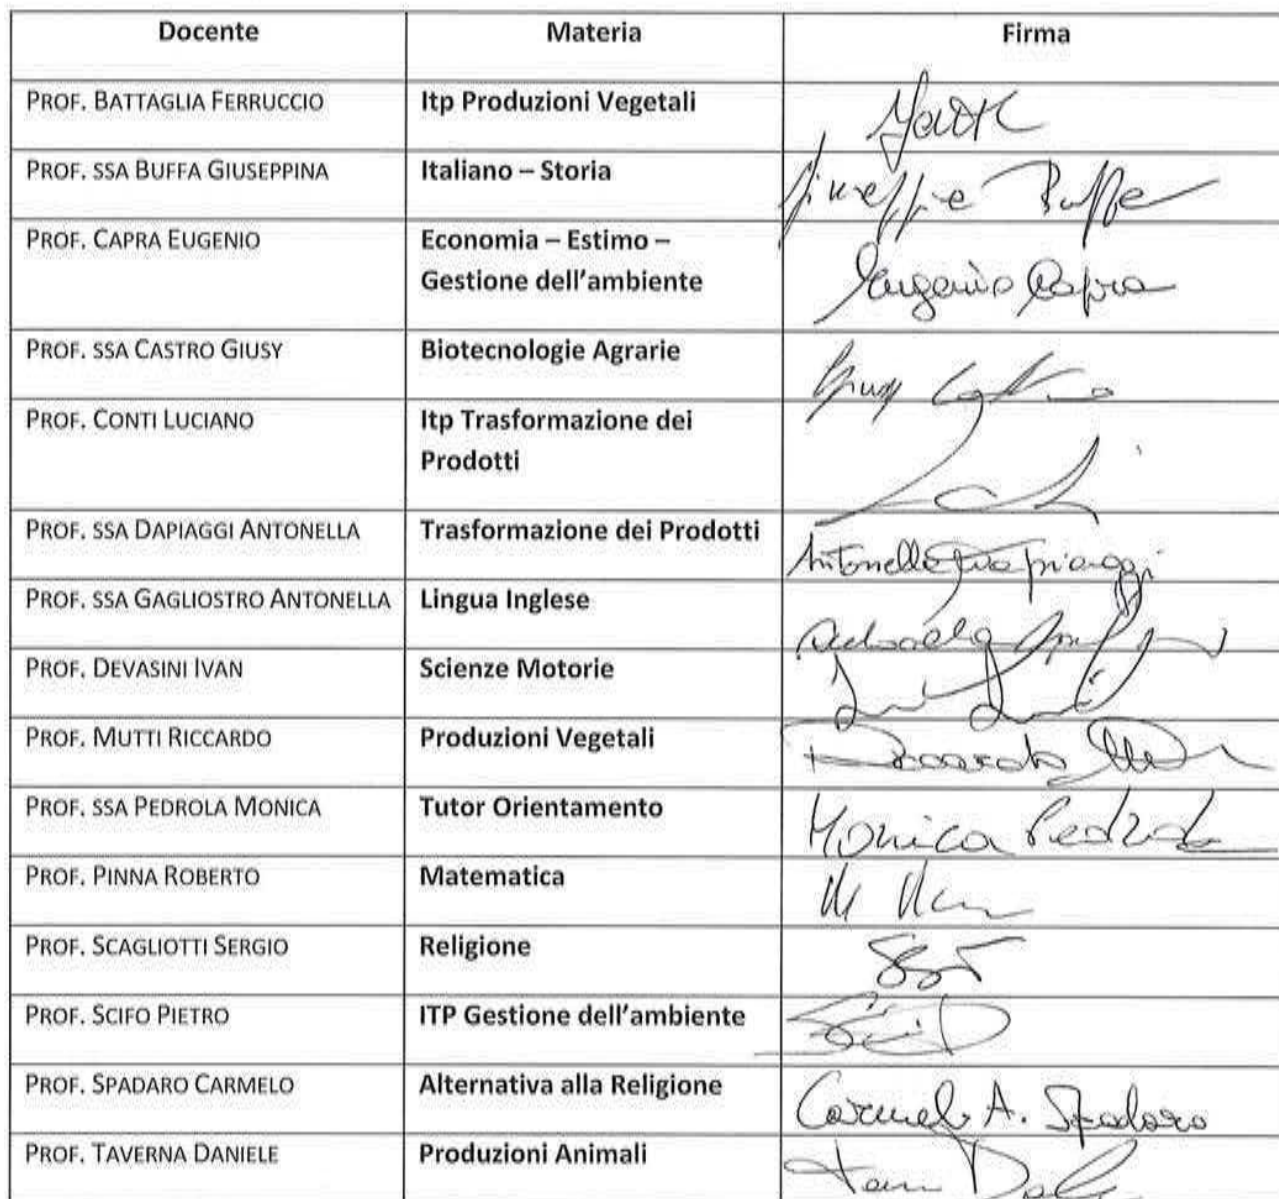 Docente Materia Firma
PROF. BATTAGLIA FERRUCCIO Itp Produzioni Vegetali
PROF. SSA BUFFA GIUSEPPINA Italiano – Storia Buffa
PROF. CAPRA EUGENIO Economia – Estimo – Eugenio Capra
Gestione dell'ambiente
PROF. SSA CASTRO GIUSY Biotecnologie Agrarie Giusy Castro
PROF. CONTI LUCIANO Itp Trasformazione dei
Prodotti
PROF. SSA DAPIAGGI ANTONELLA Trasformazione dei Prodotti Antonella Dapiaggi
PROF. SSA GAGLIOSTRO ANTONELLA Lingua Inglese
PROF. DEVASINI IVAN Scienze Motorie
PROF. MUTTI RICCARDO Produzioni Vegetali Riccardo
PROF. SSA PEDROLA MONICA Tutor Orientamento Monica Pedrola
PROF. PINNA ROBERTO Matematica
PROF. SCAGLIOTTI SERGIO Religione
PROF. SCIFO PIETRO ITP Gestione dell'ambiente
PROF. SPADARO CARMELO Alternativa alla Religione Carmelo A. Spadaro
PROF. TAVERNA DANIELE Produzioni Animali